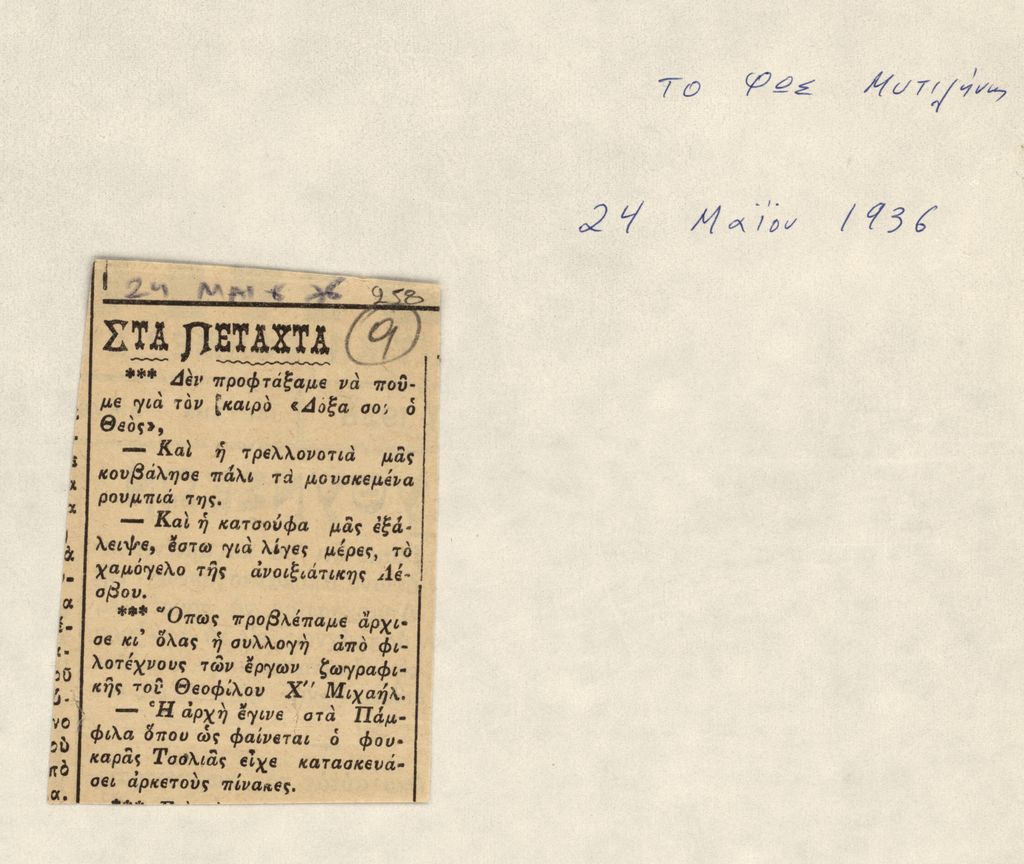 ΤΟ ΦΩΣ Μυτιλήνης
24 Μαΐου 1936
24 ΜΑΙ 36 258
ΣΤΑ ΠΕΤΑΧΤΑ 9
*** Δὲν προφτάξαμε νὰ ποῦ-
με γιὰ τὸν [καιρὸ «Δόξα σοι ὁ
Θεὸς»,
— Καὶ ἡ τρελλονοτιὰ μᾶς
κουβάλησε πάλι τὰ μουσκεμένα
ρουμπιά της.
— Καὶ ἡ κατσούφα μᾶς ἐξά-
λειψε, ἔστω γιὰ λίγες μέρες, τὸ
χαμόγελο τῆς ἀνοιξιάτικης Λέ-
σβου.
*** Ὅπως προβλέπαμε ἄρχι-
σε κι' ὅλας ἡ συλλογὴ ἀπὸ φι-
λοτέχνους τῶν ἔργων ζωγραφι-
κῆς τοῦ Θεοφίλου Χ'' Μιχαήλ.
— Ἡ ἀρχὴ ἔγινε στὰ Πάμ-
φιλα ὅπου ὡς φαίνεται ὁ φου-
καρᾶς Τσολιᾶς εἶχε κατασκευά-
σει ἀρκετοὺς πίνακες.